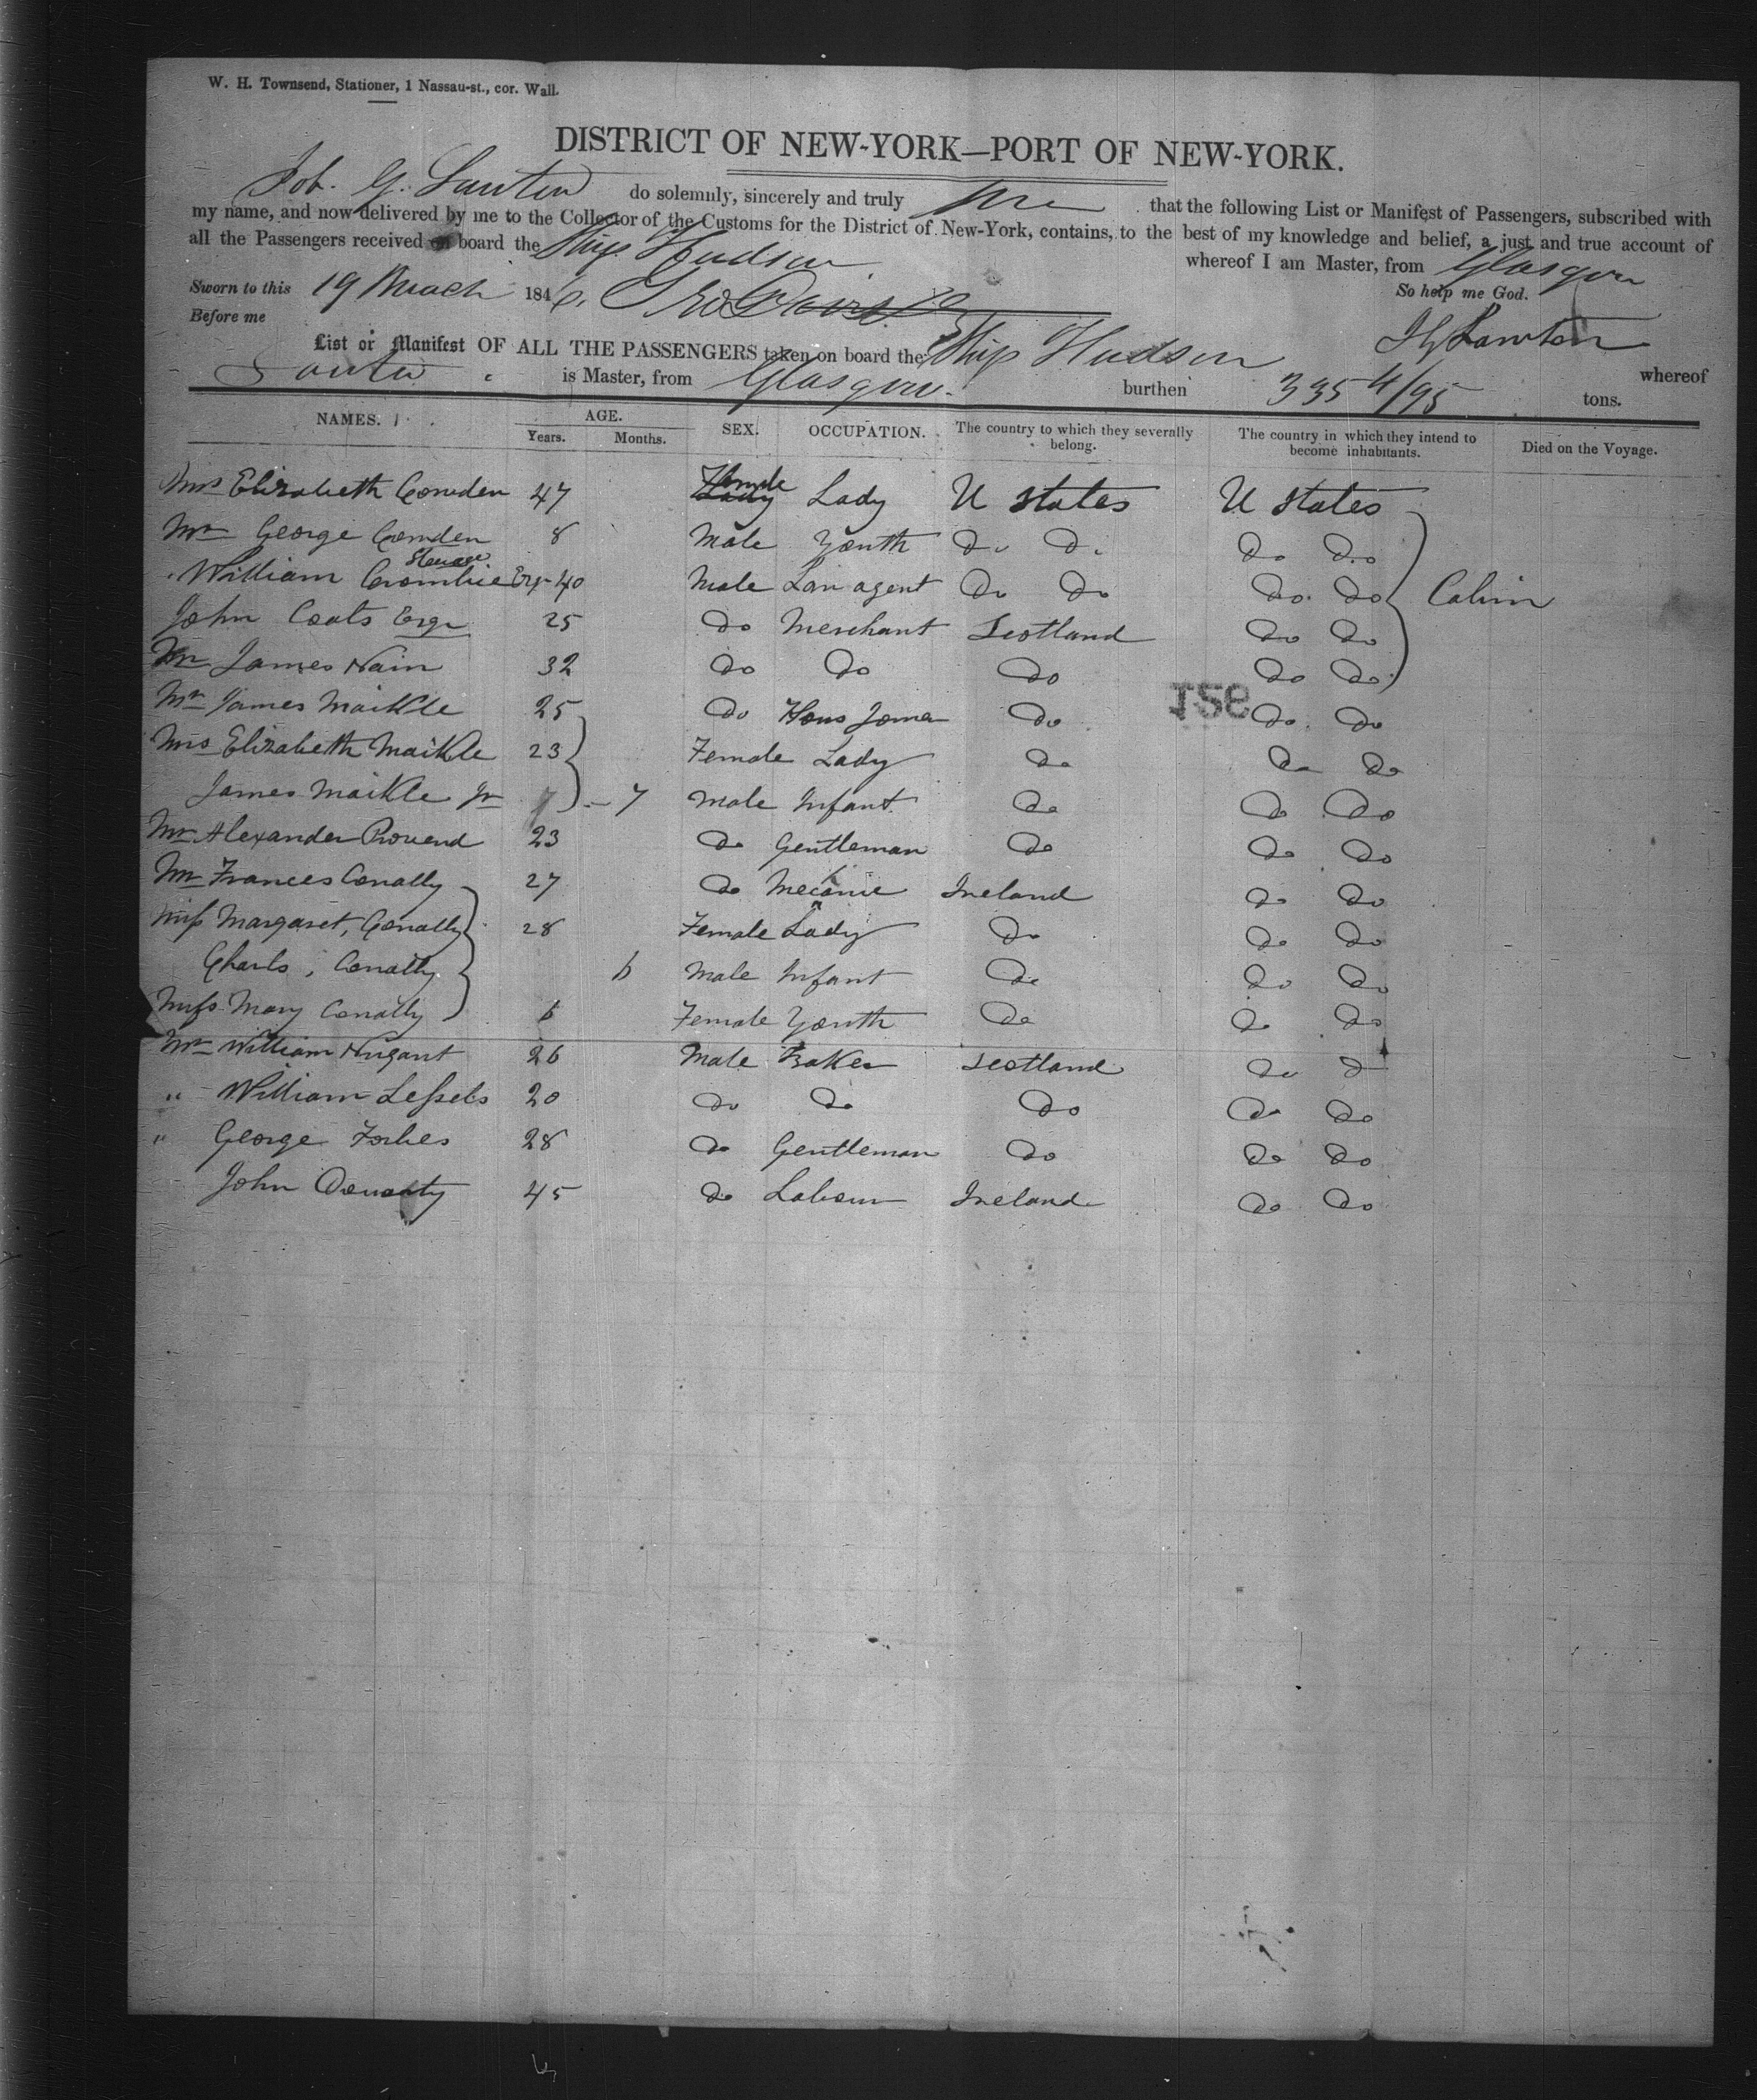 W. H. Townsend, Stationer, 1 Nassau-st., cor. Wall.
DISTRICT OF NEW-YORK—PORT OF NEW-YORK.
Job. G. Lawton do solemnly, sincerely and truly that the following List or Manifest of Passengers, subscribed with
my name, and now delivered by me to the Collector of the Customs for the District of New-York, contains, to the best of my knowledge and belief, a just and true account of
all the Passengers received on board the Ship Hudson whereof I am Master, from Glasgow
Sworn to this 19 March 1846. So help me God.
Before me J G Lawton
List or Manifest OF ALL THE PASSENGERS taken on board the Ship Hudson whereof
is Master, from Glasgow. burthen 335 4/95 tons.
NAMES. AGE. Years. Months. SEX. OCCUPATION. The country to which they severally belong. The country in which they intend to become inhabitants. Died on the Voyage.
Mrs Elizabeth Comden 47 Female Lady Lady U States U States
Mr George Comden 8 Male Youth Do Do Do Do
William Crombie Esqr 40 Male Law agent Do Do Do Do Cabin
John Coats Esqr 25 Do Merchant Scotland Do Do
Mr James Nain 32 Do Do Do Do Do
Mr James Maikle 25 Do Do Do Do
Mrs Elizabeth Maikle 23 Female Lady Do Do Do
James Maikle Jr 7 Male Infant Do Do Do
Mr Alexander Provend 23 Do Gentleman Do Do Do
Mr Frances Conally 27 Do Mecanic Ireland Do Do
Miss Margaret, Conally 28 Female Lady Do Do Do
Charls, Conally 6 Male Infant Do Do Do
Miss Mary Conally 6 Female Youth Do Do Do
Mr William Nugant 26 Male Baker Scotland Do D
" William Lessels 20 Do Do Do Do Do
" George Forbes 28 Do Gentleman Do Do Do
John 45 Do Labour Ireland Do Do